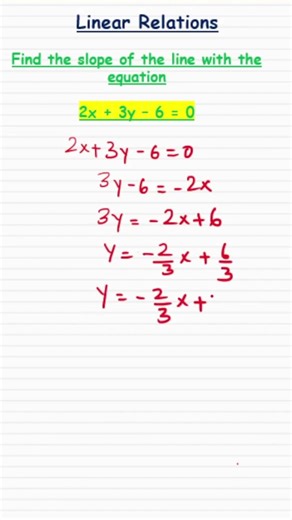 Linear Relations
Find the slope of the line with the
equation
2x + 3y - 6 = 0
2x+3y-6=0
3y-6=-2x
3y=-2x+6
y=-2/3x+6/3
y=-2/3x+